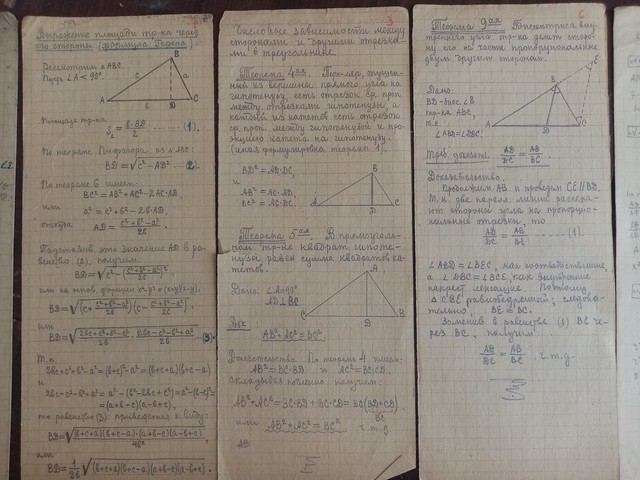 Выражение площади тр-ка через
его стороны (формула Герона)
Рассмотрим △ABC.
∠A < 90°.
B
c
a
A
b
D
C
Площадь тр-ка
S = b·BD / 2 (1).
По теореме Пифагора из △ABC:
BD = √(c² - AD²) (2).
По теореме 6 имеем:
BC² = AB² + AC² - 2AC·AD
или
a² = c² + b² - 2b·AD,
откуда
AD = (c² + b² - a²) / 2b.
Подставив это значение AD в ра-
венство (2), получим
или
(3).
Т.к.
2bc + c² + b² - a² = (b+c)² - a² = (b+c+a)(b+c-a)
и
2bc - c² - b² + a² = a² - (b² - 2bc + c²) = a² - (b-c)² =
= (a+b-c)(a-b+c),
то равенство (3) приведется к виду:
BD = √((b+c+a)(b+c-a)·(a+b-c)(a-b+c) / 4b²)
или
BD = 1/2b √((b+c+a)(b+c-a)(a+b-c)(a-b+c)).
3
Числовые зависимости между
сторонами и другими отрезка-
ми в треугольнике.
Теорема 4ая. Пер-ляр, опущен-
ный из вершины прямого угла на
гипотенузу, есть отрезок ср. проп.
между отрезками гипотенузы, а
каждый из катетов есть отрезок
ср. проп. между гипотенузой и про-
екцией катета на гипотенузу.
(иная формулировка теорем 1).
BD² = AD·DC,
и
AB² = AC·AD,
BC² = AC·DC.
B
A
D
C
Теорема 5ая. В прямоуголь-
ном тр-ке квадрат гипоте-
нузы равен сумме квадратов ка-
тетов.
Дано: ∠A = 90°
AD ⊥ BC
A
C
D
B
Док.:
AB² + AC² = BC².
Доказательство. По теореме 4 имеем:
AB² = BC·BD и AC² = BC·CD,
складывая почленно получим:
AB² + AC² = BC·BD + BC·CD = BC(BD + CD)
BC
или AB² + AC² = BC² ч.т.д.
AB
6
Теорема 9ая. Биссектриса вну-
треннего угла тр-ка делит сторо-
ну его на части пропорциональные
двум другим сторонам.
Дано:
BD - бисс. ∠B
тр-ка ABC,
т.е.
∠ABD = ∠DBC.
E
B
A
D
C
Треб. доказать: AD/DC = AB/BC.
Доказательство.
Продолжим AB и проведем CE ∥ BD.
Т.к. две паралл. линии рассека-
ют стороны угла на пропорцио-
нальные отрезки, то
AD/DC = AB/BE (1).
∠ABD = ∠BEC, как соответственные,
а ∠DBC = ∠BCE, как внутренние
накрест лежащие. Поэтому,
△ CBE равнобедренный; следова-
тельно, BE = BC.
Заменив в равенстве (1) BE че-
рез BC, получим
AD/DC = AB/BC. ч.т.д.